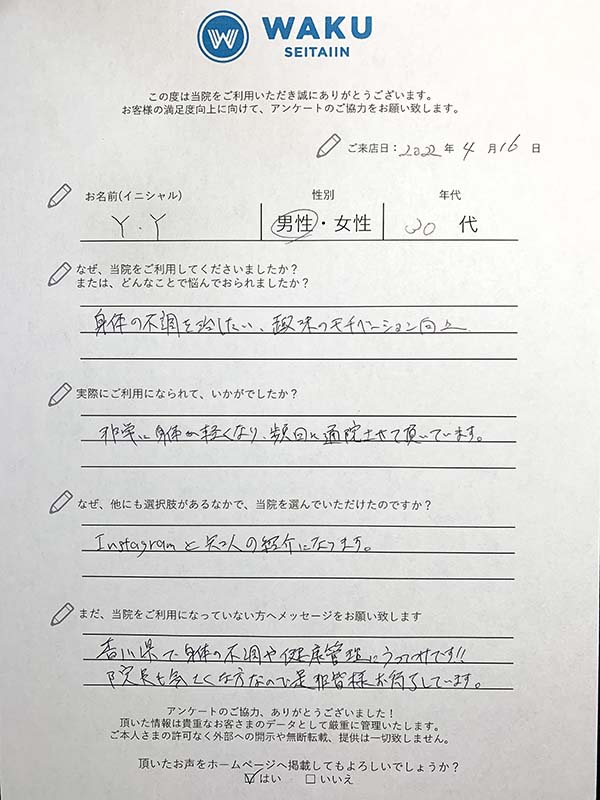 WAKU
SEITAIIN
この度は当院をご利用いただき誠にありがとうございます。
お客様の満足度向上に向けて、アンケートのご協力をお願い致します。
ご来店日：2022年 4月16日
お名前(イニシャル) 性別 年代
Y.Y 男性・女性 30代
なぜ、当院をご利用してくださいましたか？
または、どんなことで悩んでおられましたか？
身体の不調を治したい、趣味のモチベーション向上
実際にご利用になられて、いかがでしたか？
非常に身体が軽くなり、頻回に通院させて頂いています。
なぜ、他にも選択肢があるなかで、当院を選んでいただけたのですか？
Instagramと知人の紹介になります。
まだ、当院をご利用になっていない方へメッセージをお願い致します
香川県で身体の不調や健康管理にうってつけです!!
院長も気さくな方なので是非皆様お待ちしています。
アンケートのご協力、ありがとうございました！
頂いた情報は貴重なお客さまのデータとして厳重に管理いたします。
ご本人さまの許可なく外部への開示や無断転載、提供は一切致しません。
頂いたお声をホームページへ掲載してもよろしいでしょうか？
☑はい □いいえ